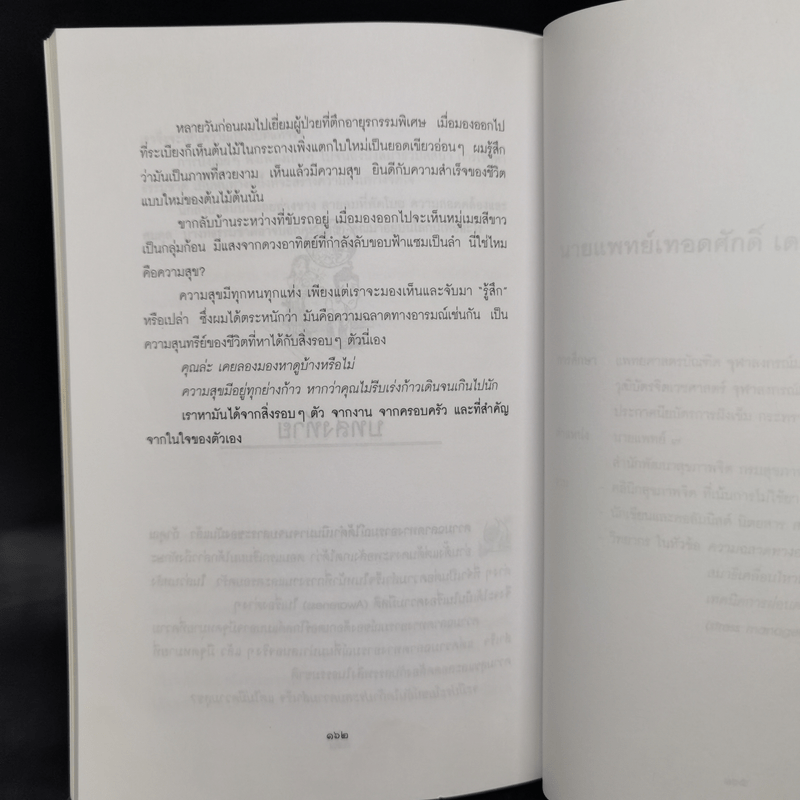 หลายวันก่อนผมไปเยี่ยมผู้ป่วยที่ตึกอายุรกรรมพิเศษ เมื่อมองออกไป
ที่ระเบียงก็เห็นต้นไม้ในกระถางเพิ่งแตกใบใหม่เป็นยอดเขียวอ่อนๆ ผมรู้สึก
ว่ามันเป็นภาพที่สวยงาม เห็นแล้วมีความสุข ยินดีกับความสำเร็จของชีวิต
แบบใหม่ของต้นไม้ต้นนั้น
ขากลับบ้านระหว่างที่ขับรถอยู่ เมื่อมองออกไปจะเห็นหมู่เมฆสีขาว
เป็นกลุ่มก้อน มีแสงจากดวงอาทิตย์ที่กำลังลับขอบฟ้าแซมเป็นลำ นี่ใช่ไหม
คือความสุข?
ความสุขมีทุกหนทุกแห่ง เพียงแต่เราจะมองเห็นและจับมา "รู้สึก"
หรือเปล่า ซึ่งผมได้ตระหนักว่า มันคือความฉลาดทางอารมณ์เช่นกัน เป็น
ความสุนทรีย์ของชีวิตที่หาได้กับสิ่งรอบๆ ตัวนี่เอง
คุณล่ะ เคยลองมองหาดูบ้างหรือไม่
ความสุขมีอยู่ทุกย่างก้าว หากว่าคุณไม่รีบเร่งก้าวเดินจนเกินไปนัก
เราหามันได้จากสิ่งรอบๆ ตัว จากงาน จากครอบครัว และที่สำคัญ
จากในใจของตัวเอง
๑๖๒